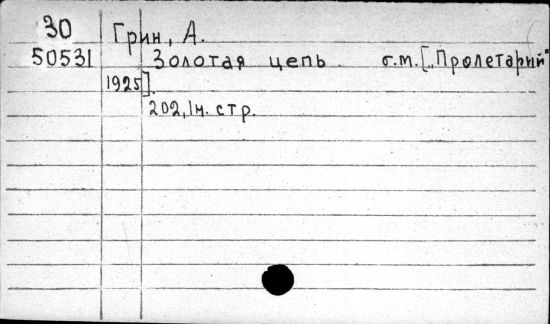 30 Грин, А.
50531 Золотая цепь. б.м. ["Пролетарий"
1925].
202, 1н. стр.